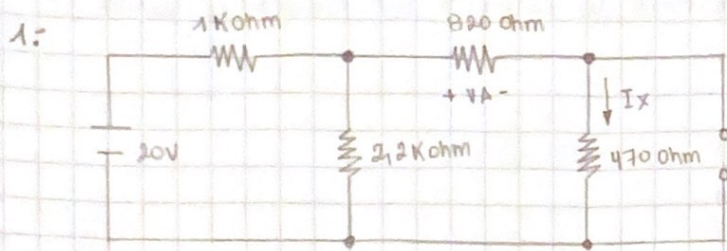 1:-
1Kohm
820 ohm
+ VA -
Ix
20V
2,2Kohm
470 ohm